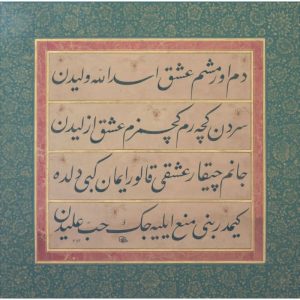 دم اورمشم عشق اسد الله ولیدن
سردن کچه رم کچمزم عشق ازلیدن
جانم چیقار عشقی قالور ایمان کبی دلده
کیمدر بنی منع ایلیه جک حب علیدن